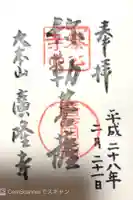 奉拝
平成二十八年
二月二十一日
弥勒菩薩
大本山 廣隆寺
CamScannerでスキャン